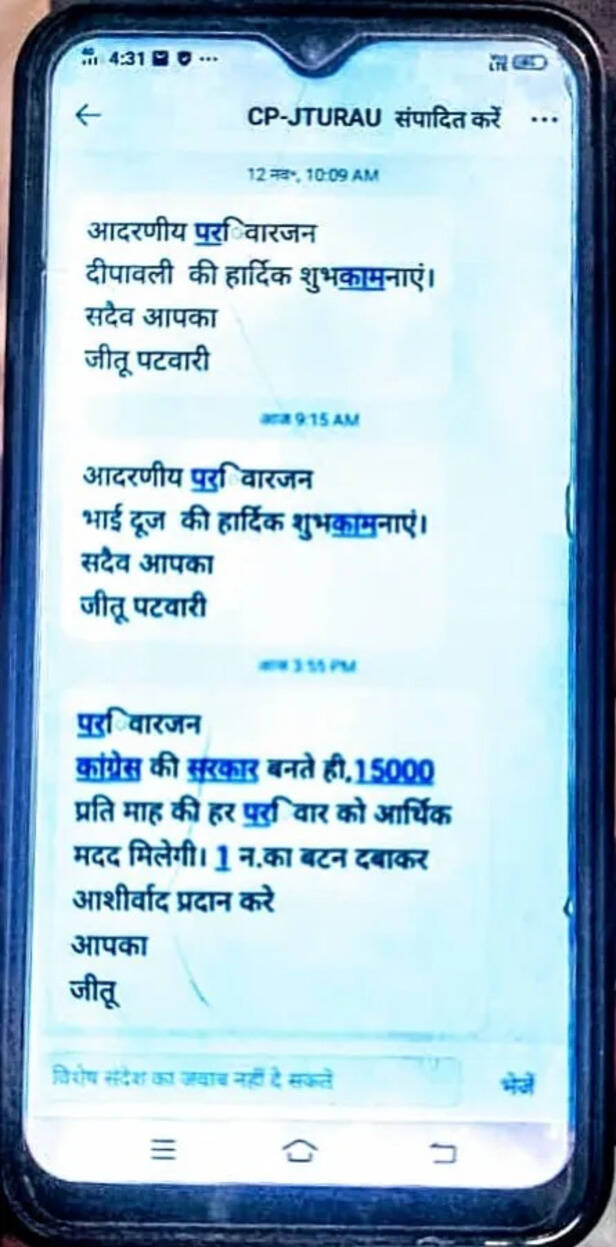 4G 4:31 ...
← CP-JTURAU संपादित करें ...
12 नव॰, 10:09 AM
आदरणीय पर िवारजन
दीपावली की हार्दिक शुभकामनाएं।
सदैव आपका
जीतू पटवारी
आज 9:15 AM
आदरणीय पर िवारजन
भाई दूज की हार्दिक शुभकामनाएं।
सदैव आपका
जीतू पटवारी
आज 3:55 PM
पर िवारजन
कांग्रेस की सरकार बनते ही,15000
प्रति माह की हर पर िवार को आर्थिक
मदद मिलेगी। 1 न.का बटन दबाकर
आशीर्वाद प्रदान करे
आपका
जीतू
विशेष संदेश का जवाब नहीं दे सकते
भेजें